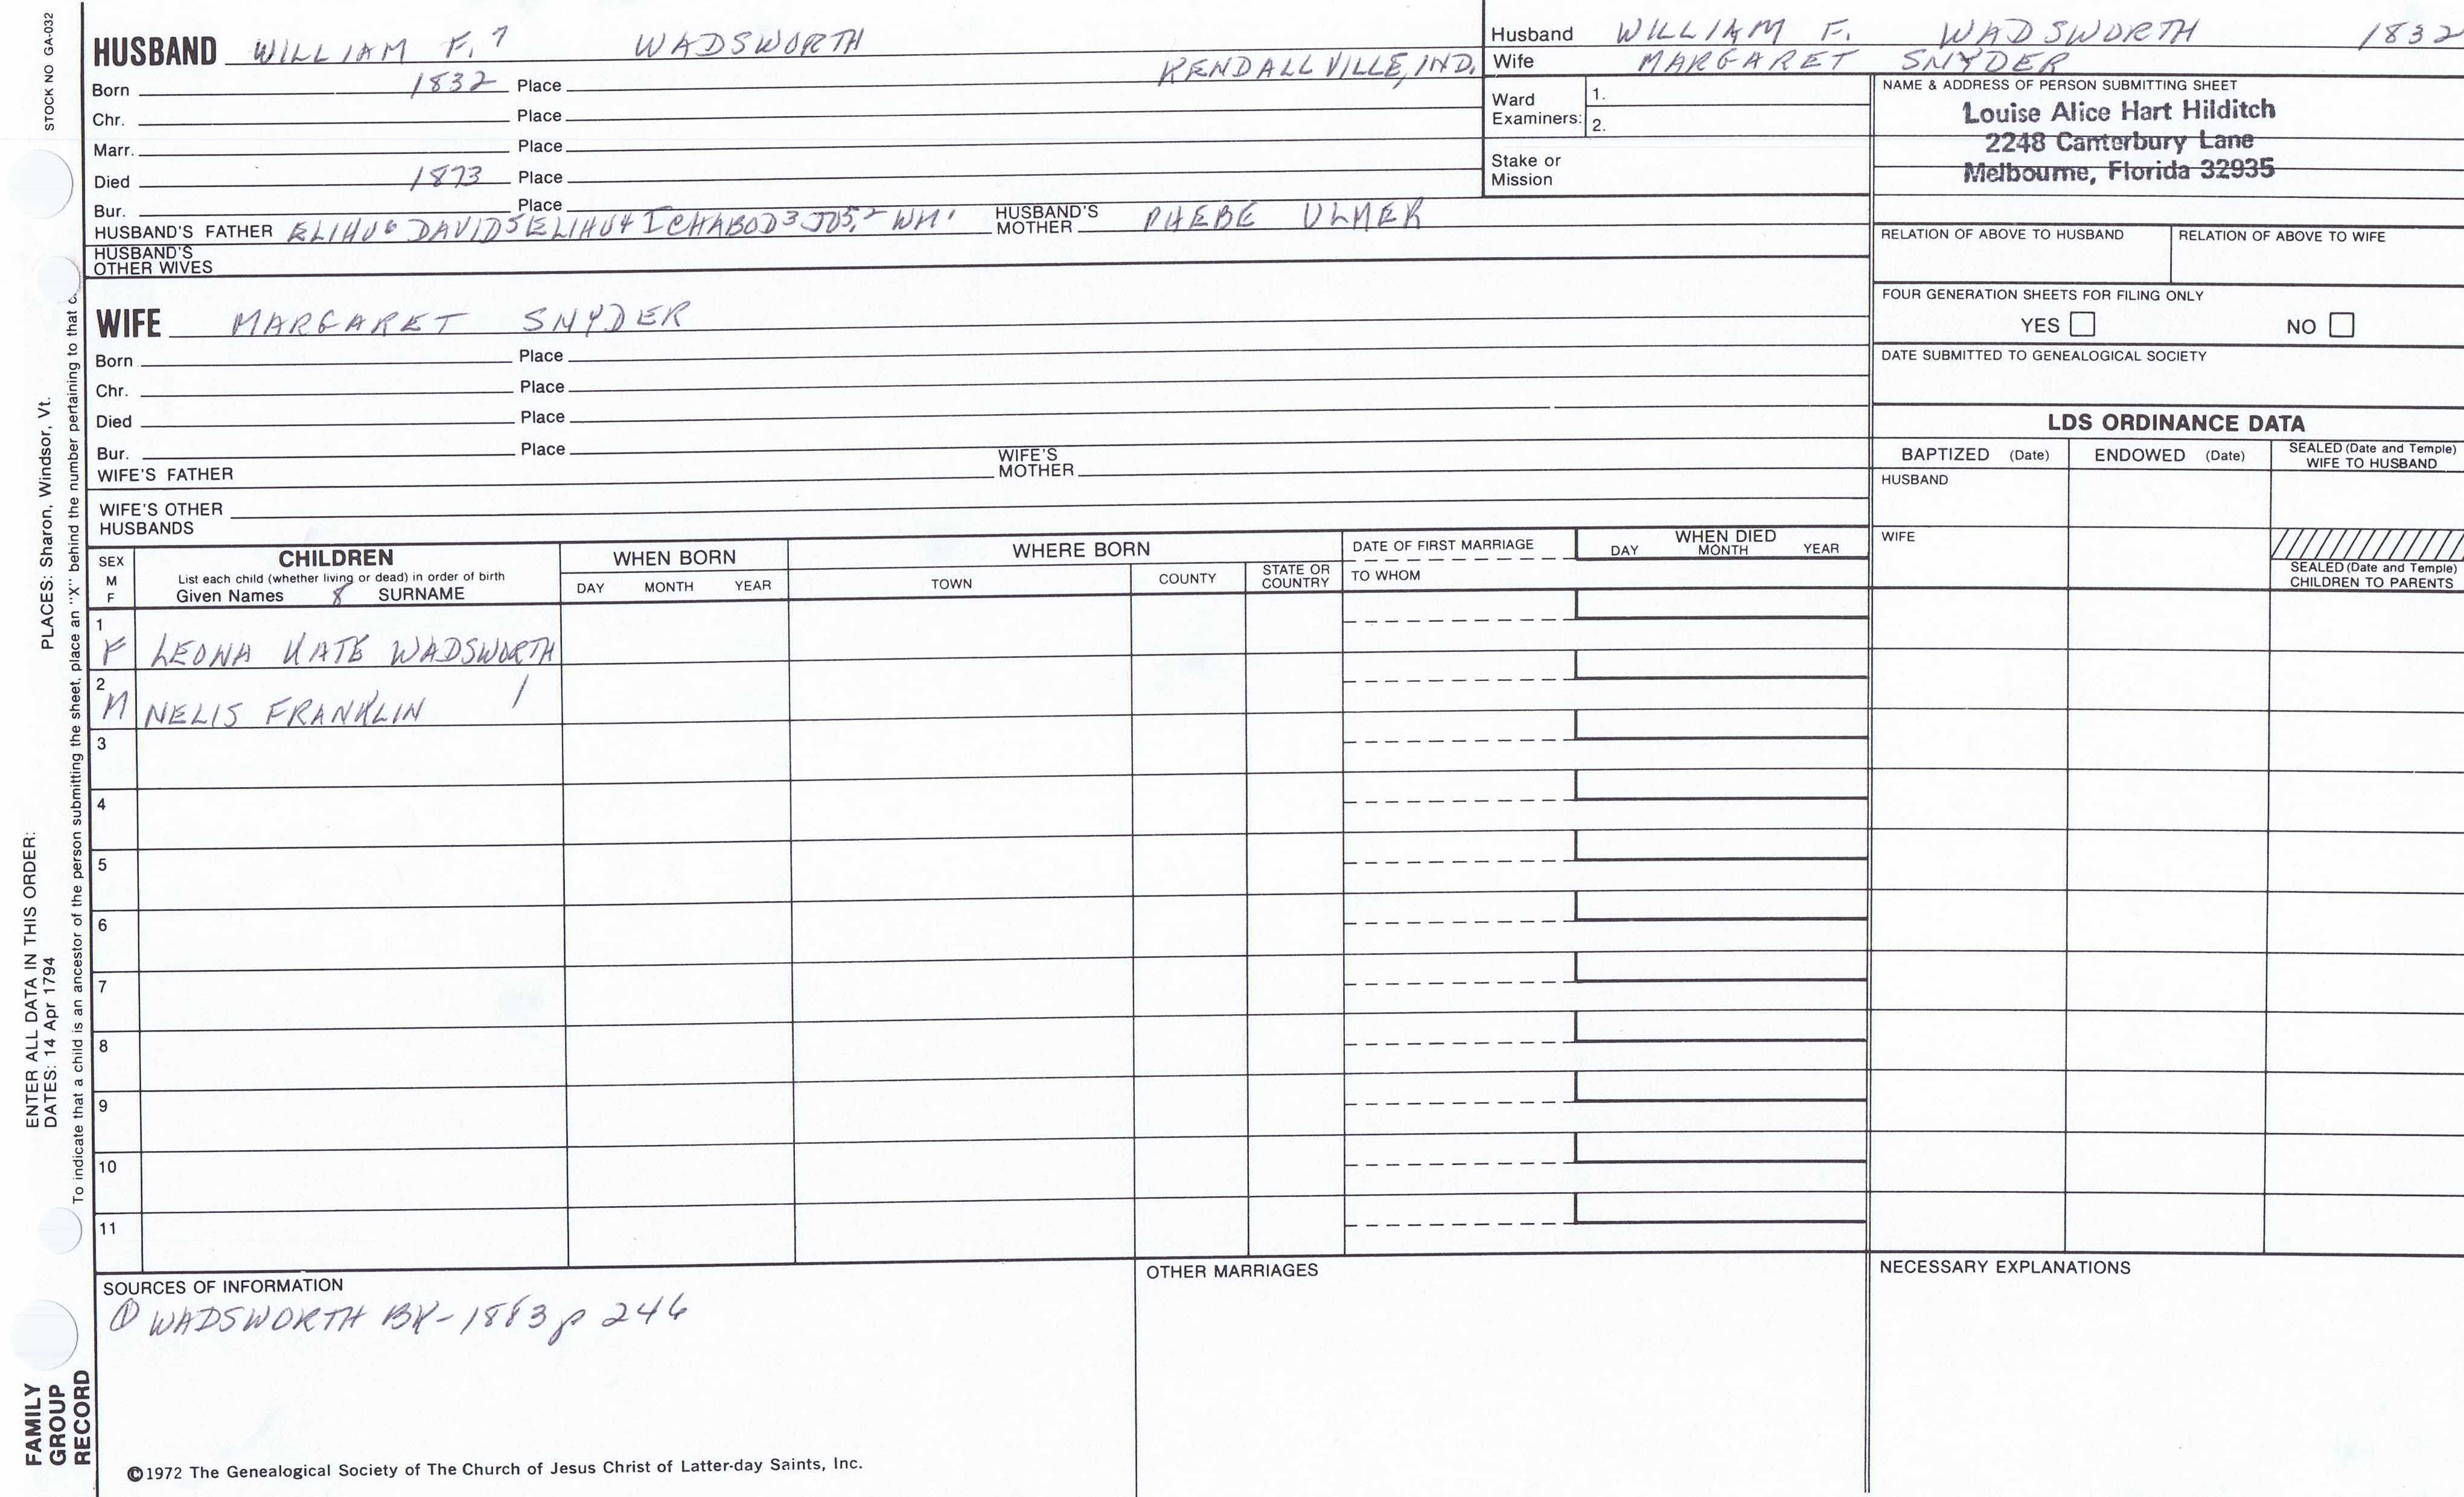 STOCK NO GA-032
HUSBAND WILLIAM F.7 WADSWORTH
Born 1832 Place KENDALLVILLE, IND.
Chr. Place
Marr. Place
Died 1873 Place
Bur. Place
HUSBAND'S FATHER ELIHU6 DAVID5 ELIHU4 ICHABOD3 JOS.2 WM1 HUSBAND'S MOTHER PHEBE ULMER
HUSBAND'S OTHER WIVES
WIFE MARGARET SNYDER
Born Place
Chr. Place
Died Place
Bur. Place
WIFE'S FATHER WIFE'S MOTHER
WIFE'S OTHER HUSBANDS
Husband WILLIAM F. WADSWORTH 1832
Wife MARGARET SNYDER
Ward Examiners: 1.
2.
Stake or Mission
NAME & ADDRESS OF PERSON SUBMITTING SHEET
Louise Alice Hart Hilditch
2248 Canterbury Lane
Melbourne, Florida 32935
RELATION OF ABOVE TO HUSBAND RELATION OF ABOVE TO WIFE
FOUR GENERATION SHEETS FOR FILING ONLY
YES NO
DATE SUBMITTED TO GENEALOGICAL SOCIETY
LDS ORDINANCE DATA
BAPTIZED (Date) ENDOWED (Date) SEALED (Date and Temple) WIFE TO HUSBAND
HUSBAND
WIFE
SEALED (Date and Temple) CHILDREN TO PARENTS
SEX M F
CHILDREN
List each child (whether living or dead) in order of birth
Given Names 8 SURNAME
WHEN BORN
DAY MONTH YEAR
WHERE BORN
TOWN COUNTY STATE OR COUNTRY
DATE OF FIRST MARRIAGE
TO WHOM
WHEN DIED
DAY MONTH YEAR
1 F LEONA KATE WADSWORTH
2 M NELIS FRANKLIN /
3
4
5
6
7
8
9
10
11
SOURCES OF INFORMATION
① WADSWORTH BK-1883 p 246
OTHER MARRIAGES
NECESSARY EXPLANATIONS
©1972 The Genealogical Society of The Church of Jesus Christ of Latter-day Saints, Inc.
FAMILY
GROUP
RECORD
ENTER ALL DATA IN THIS ORDER:
DATES: 14 Apr 1794
PLACES: Sharon, Windsor, Vt.
To indicate that a child is an ancestor of the person submitting the sheet, place an "X" behind the number pertaining to that